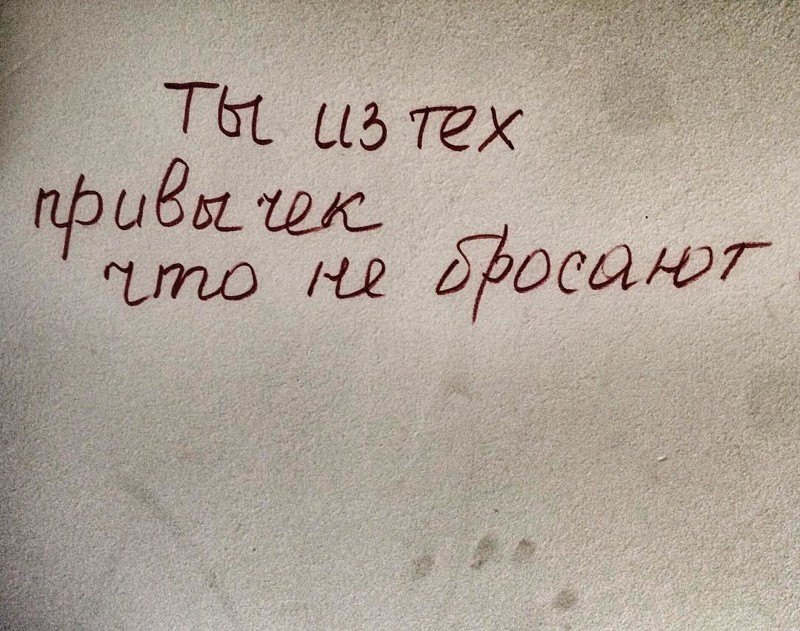 Ты из тех
привычек
что не бросают